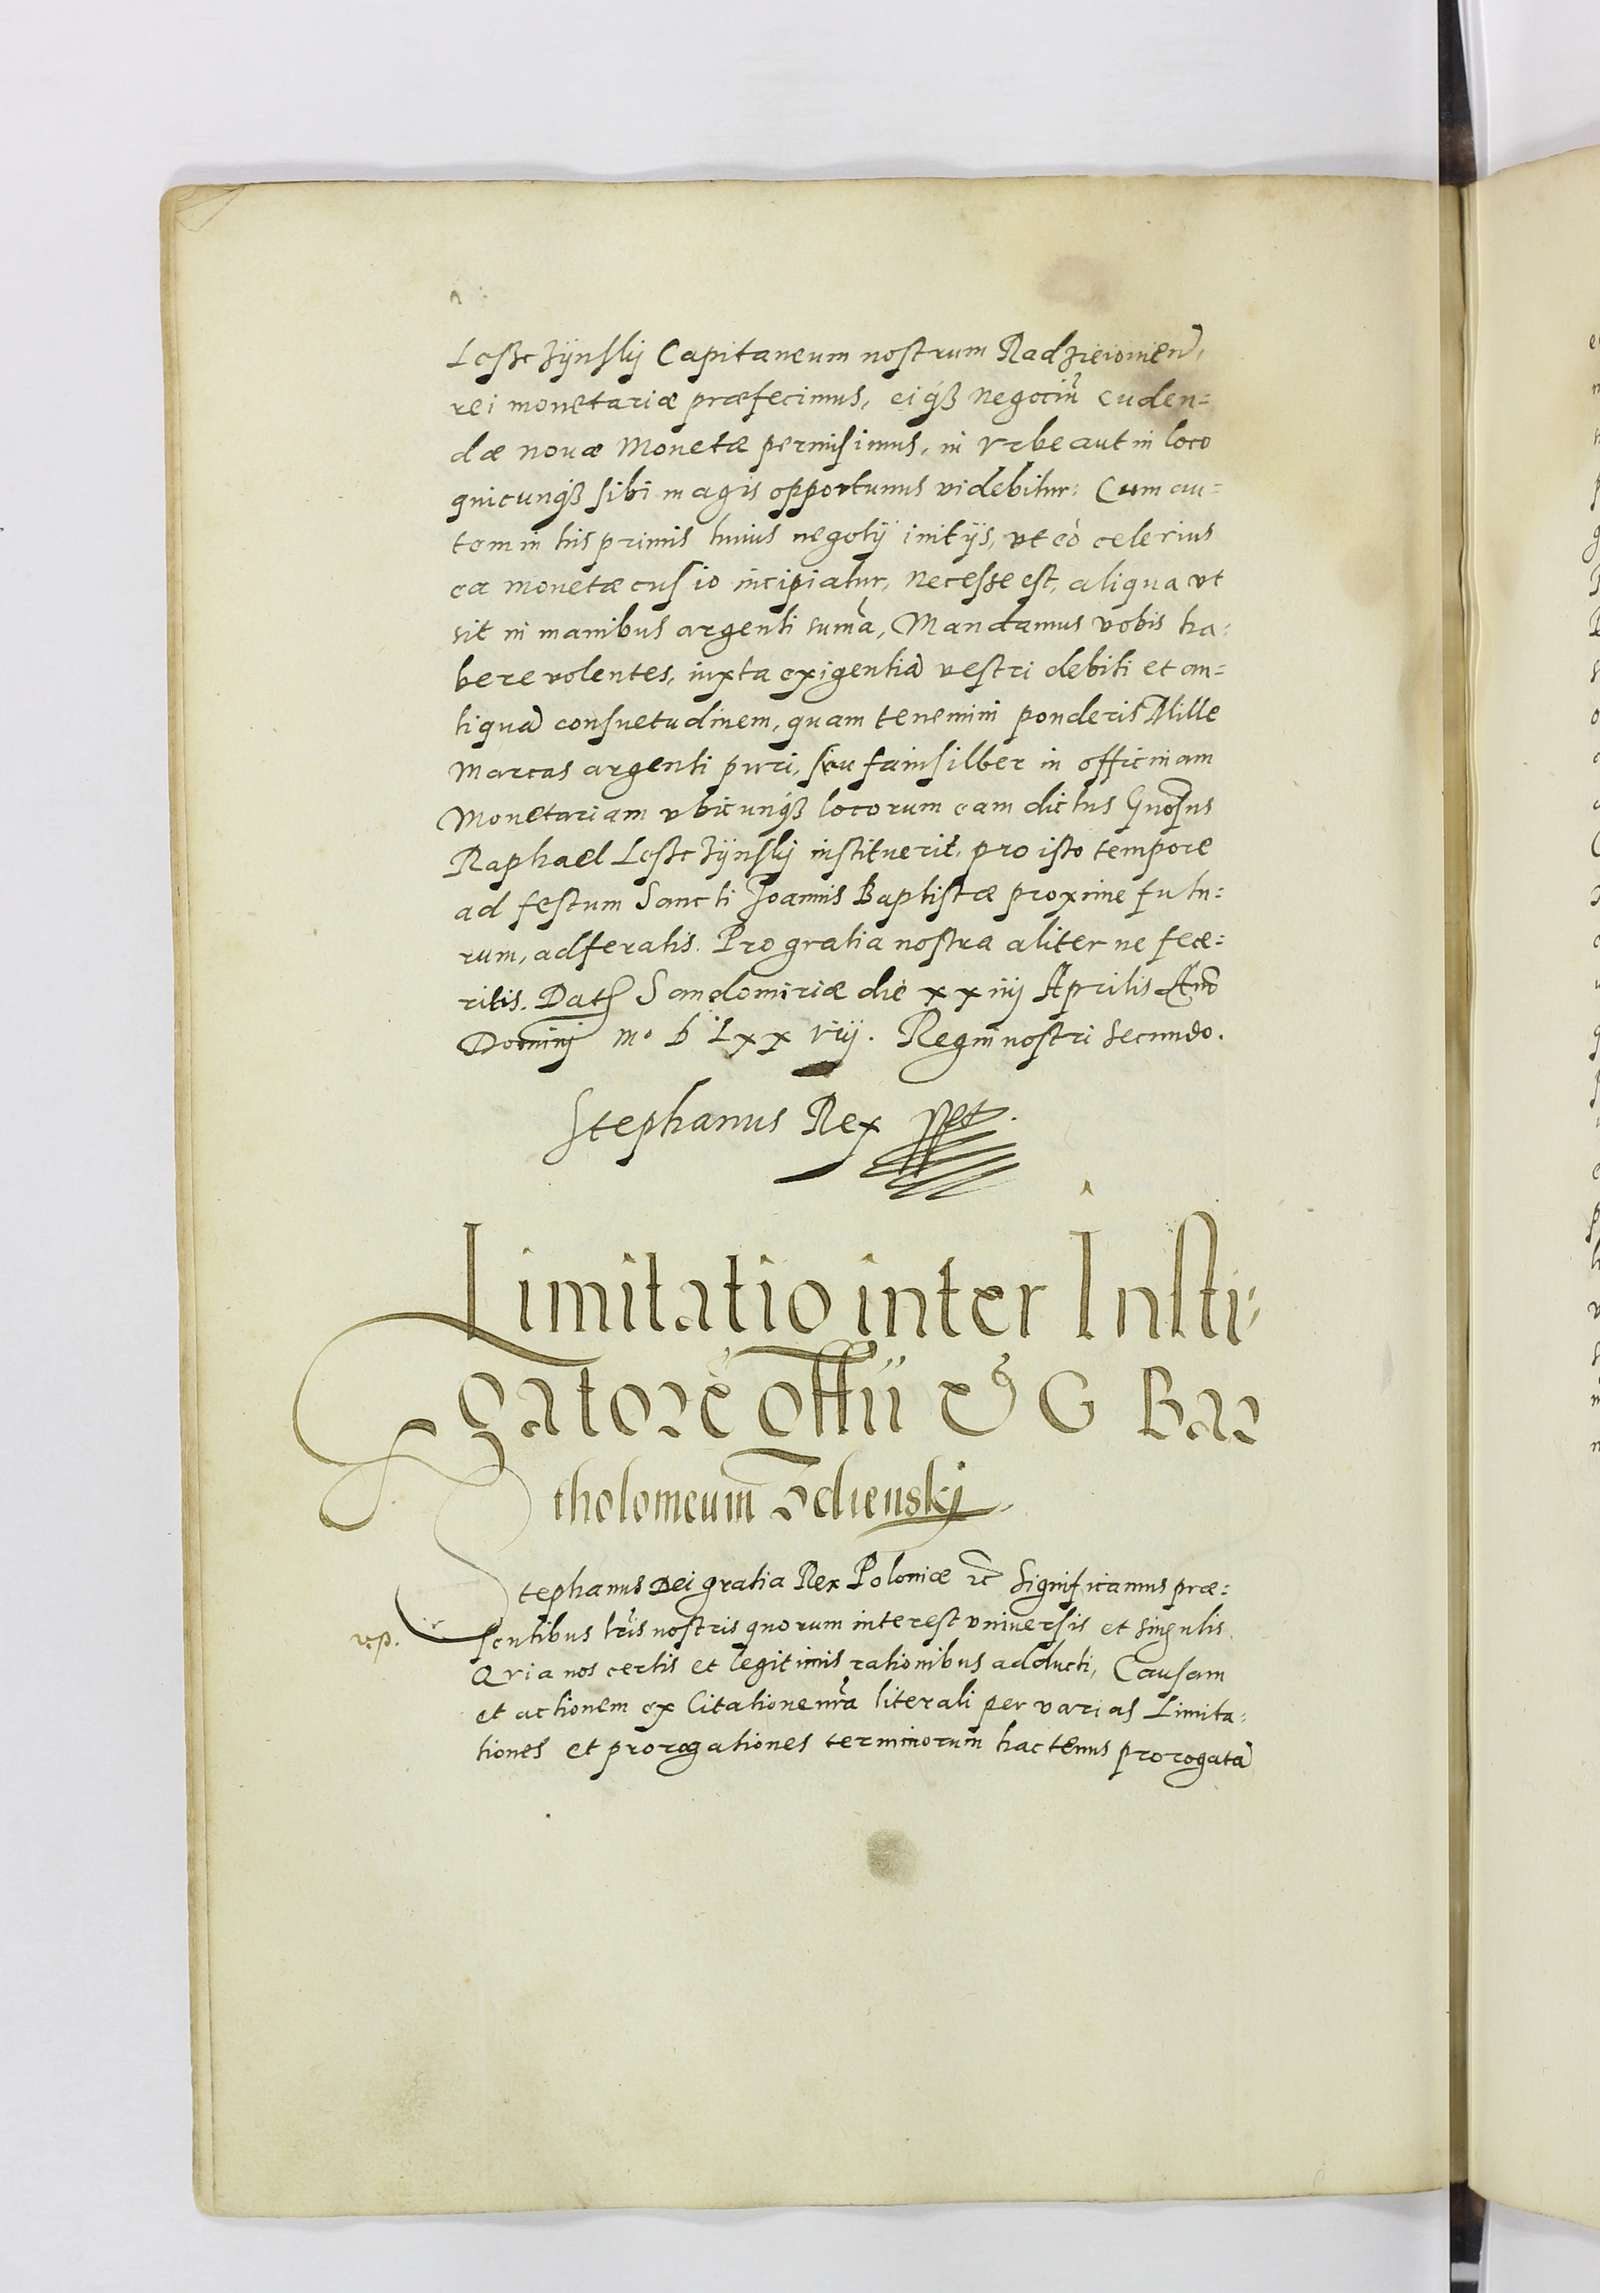 Lesßczÿnskÿ Capitaneum nostrum Radzieiovien̄,
rei monetariæ præfecimus, eiq́ß negociū cuden=
dæ nouæ Monetæ permisimus, in vrbe aut in loco
quicunq́ß sibi magis opportunus videbitur: Cum au=
tem in his primis huius negotÿ initÿs, vt eò celerius
ea monetæ cusio incipiatur, necesse est, aliqua vt
sit in manibus argenti sum̄a, Mandamus vobis ha=
bere volentes, iuxta exigentiā vestri debiti et an=
tiquā consuetudinem, quam tenemini ponderis Mille
Marcas argenti puri, seu fainsilber in officinam
Monetariam vbicunq́ß locorum eam dictus Gnosus
Raphael Lesßczÿnskÿ instituerit, pro isto tempore
ad festum Sancti Joannis Baptistæ proxime futu=
rum, adferatis. Pro gratia nostra aliter ne fece=
ritis. Dat Sandomiriæ die xxiiij Aprilis Anō
Domini m° d Lxx viij. Regni nostri secundo.
Stephanus Rex sst.
Limitatio inter Insti=
gatorē offii et G Bar
tholomeum Zelienskj
Stephanus Dei gratia Rex Poloniæ etc̄ Significamus præ=
sentibus lr̄is nostris quorum interest vniversis et singulis
Qvia nos certis et legitimis rationibus adducti, Causam
et actionem ex Citatione nr̄a literali per varias Limita=
tiones et prorogationes terminorum hactenus prorogatā